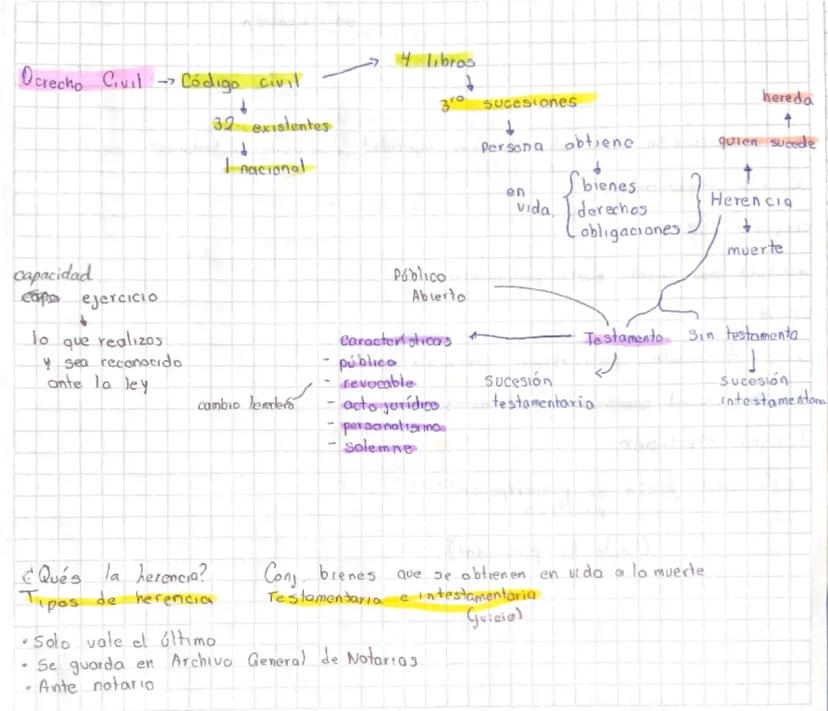 Derecho Civil → Código civil → 4 libros
32 existentes
1 nacional
3ro sucesiones
persona obtiene
en vida
bienes
derechos
obligaciones
Herencia
quien sucede
hereda
muerte
capacidad
ejercicio
lo que realizas
y sea reconocido
ante la ley
Público
Abierto
Testamento
Sin testamento
Características
- público
- revocable
- acto jurídico
- personalismo
- solemne
cambio heredero
sucesión
testamentaria
sucesión
intestamentaria
¿Qués la herencia? Conj. bienes que se obtienen en vida o la muerte
Tipos de herencia Testamentaria e intestamentaria
(juicio)
• Solo vale el último
• Se guarda en Archivo General de Notarias
• Ante notario